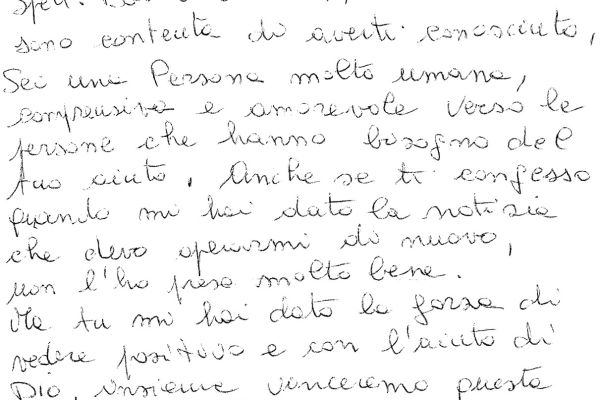 sono contenta di averti conosciuto,
Sei una Persona molto umana,
comprensiva e amorevole verso le
persone che hanno bisogno del
tuo aiuto. Anche se ti confesso
quando mi hai dato la notizia
che devo operarmi di nuovo,
non l'ho presa molto bene.
Ma tu mi hai dato la forza di
vedere positivo e con l'aiuto di
Dio, insieme vinceremo questa